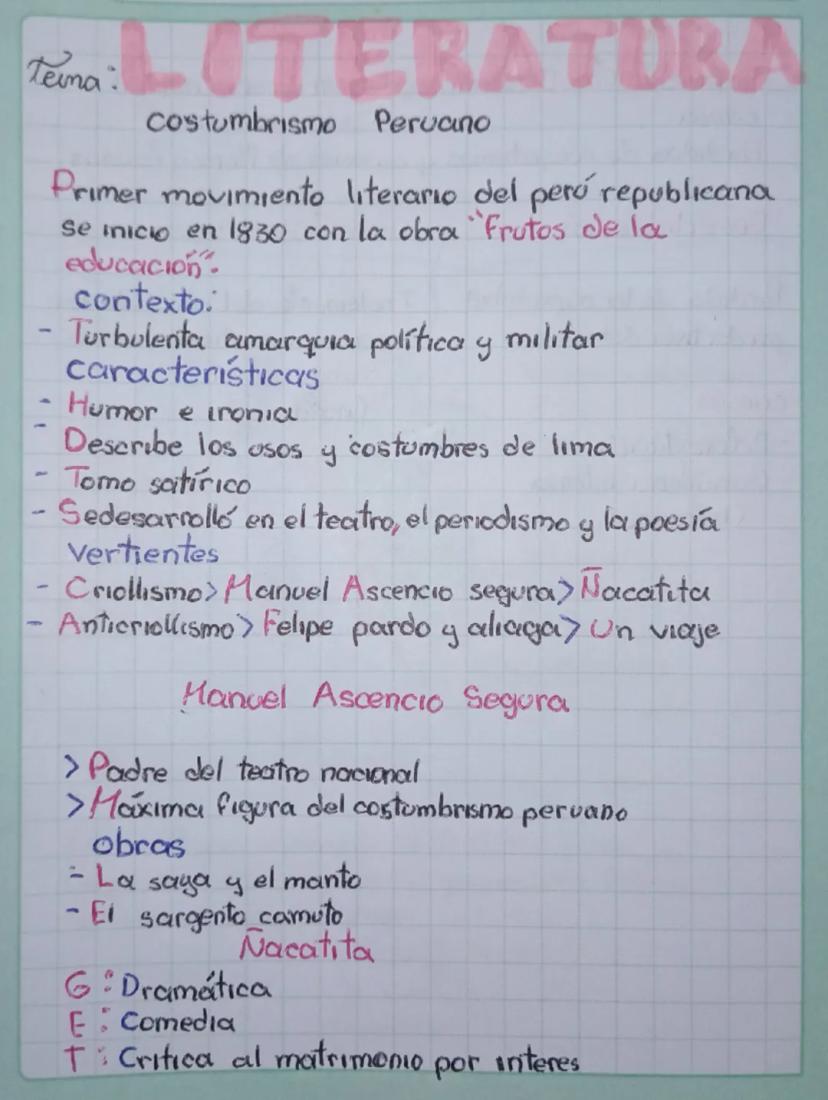 LITERATURA
Tema:
costumbrismo Peruano
Primer movimiento literario del perú republicana
se inicio en 1830 con la obra "frutos de la
educación".
contexto:
- Turbulenta amarquia política y militar
características
- Humor e ironia
- Describe los usos y costumbres de lima
- Tomo satírico
- Sedesarrolló en el teatro, el periodismo y la poesía
vertientes
- Criollismo > Manuel Ascencio segura > Ñacatita
- Anticriollismo > Felipe pardo y aliaga > Un viaje
Manuel Ascencio Segura
> Padre del teatro nacional
> Máxima figura del costumbrismo peruano
obras
- La saya y el manto
- El sargento camuto
Ñacatita
G: Dramática
E: Comedia
T: Critica al matrimonio por interes